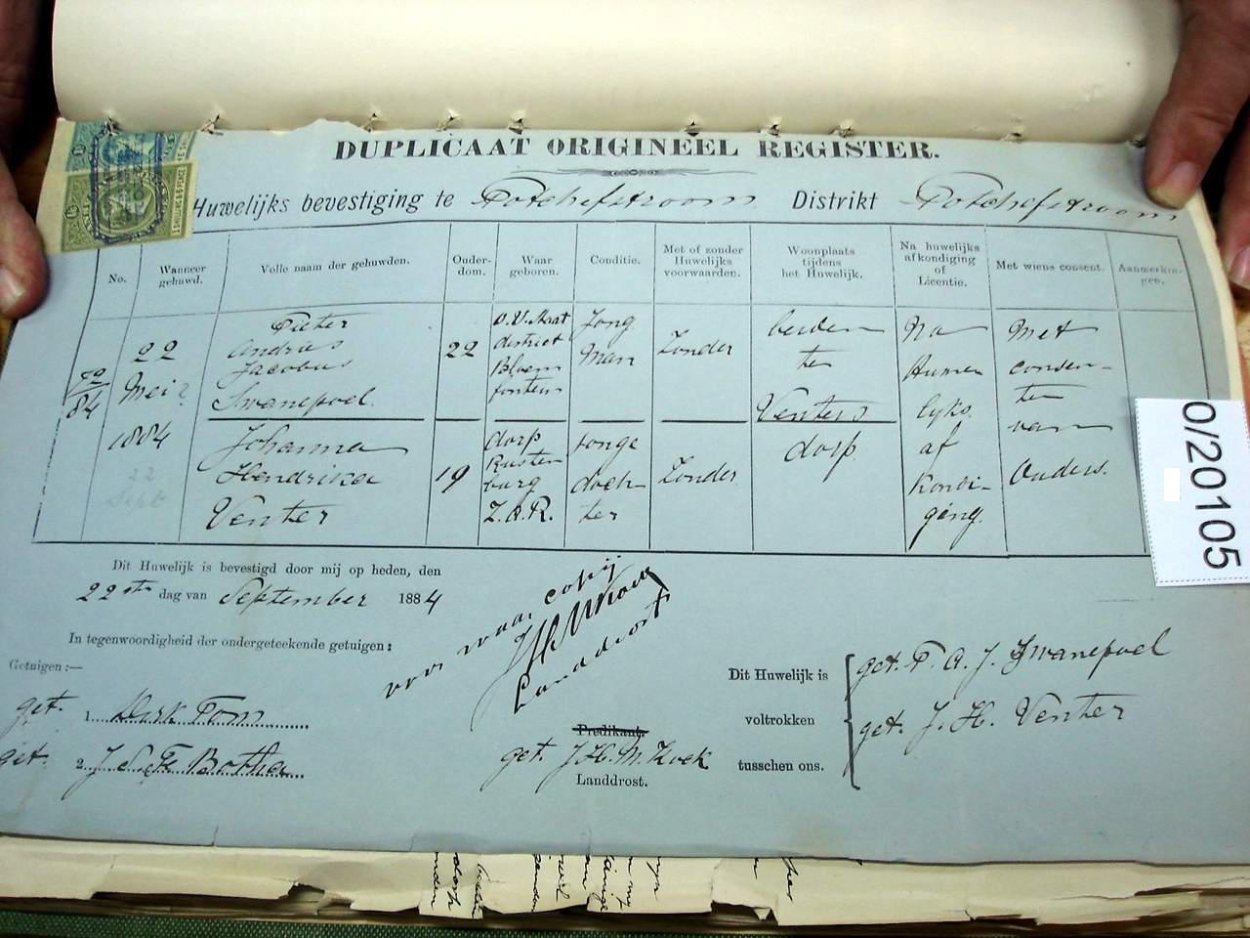 DUPLICAAT ORIGINEEL REGISTER.
Huwelijks bevestiging te Potchefstroom Distrikt Potchefstroom
No.
Wanneer gehuwd.
Volle naam der gehuwden.
Ouder-
dom.
Waar
geboren.
Conditie.
Met of zonder
Huwelijks
voorwaarden.
Woonplaats
tijdens
het Huwelijk.
Na huwelijks
afkondiging
of
Licentie.
Met wiens consent.
Aanmerkin-
gen.
72/84
22
Mei?
1884
22
Sept
Pieter
Andries
Jacobus
Swanepoel.
22
O.V. Staat
district
Bloem
fontein
Jong
Man
Zonder
beiden
te
Venters
dorp
Na
Huwe
lyks
af
kondi-
ging.
Met
consen-
ten
van
Ouders.
Johanna
Hendrika
Venter
19
dorp
Rusten
burg
Z.A.R.
Jonge
doch-
ter
Zonder
Dit Huwelijk is bevestigd door mij op heden, den
22ste dag van September 1884
In tegenwoordigheid der ondergeteekende getuigen:
Getuigen:—
get. 1. Derk Tom
get. 2. J S F Botha
voor waar copij
Landdrost
Predikant.
get. J.H.M. Kock
Landdrost.
Dit Huwelijk is
voltrokken
tusschen ons.
get. P. A. J. Swanepoel
get. J. H. Venter
0/20105